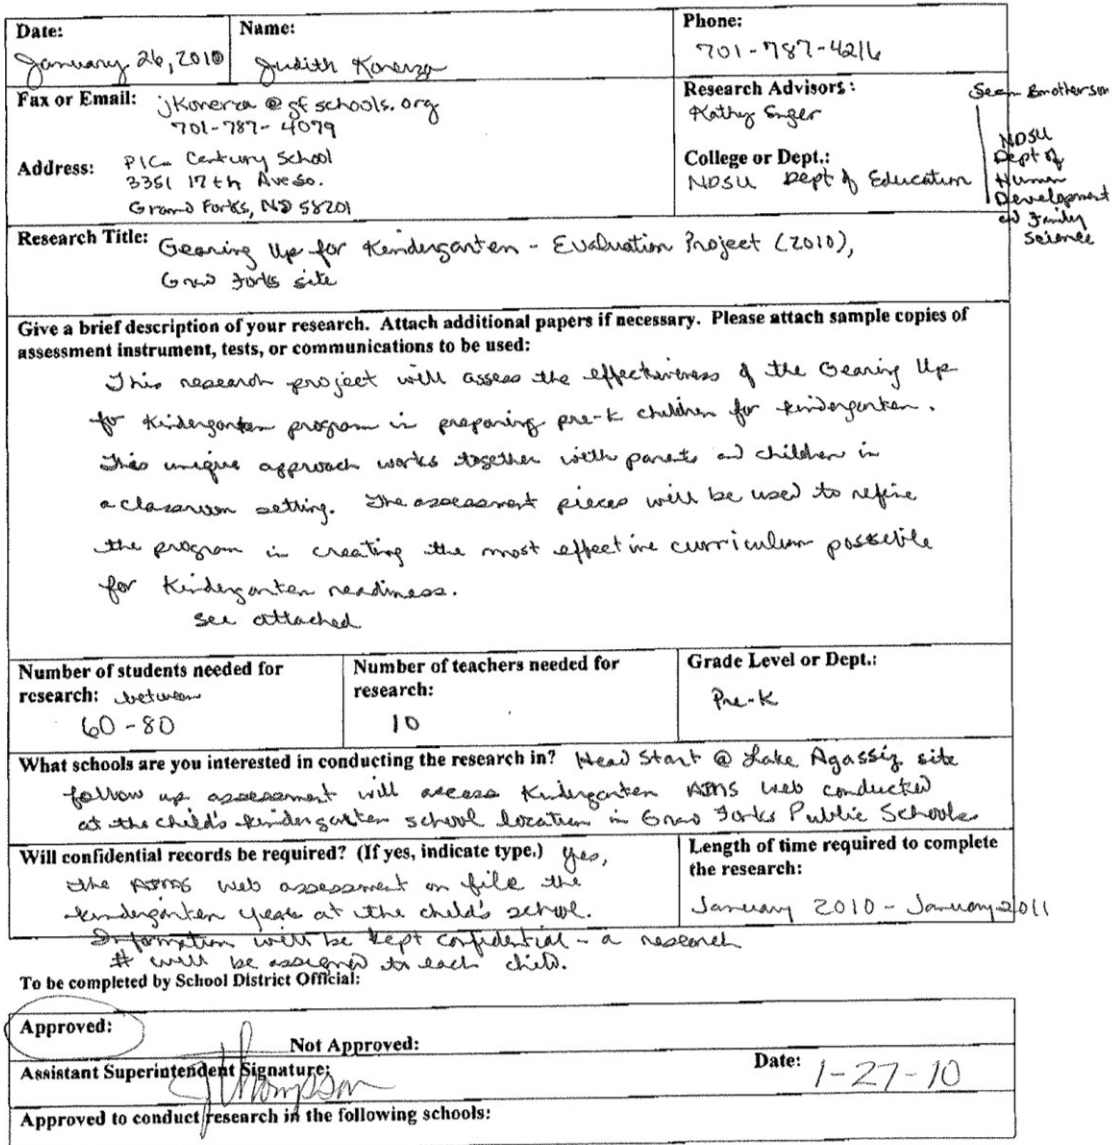 Date:
January 26, 2010
Name:
Judith Konerza
Phone:
701-787-4216
Fax or Email: jkonerza @ gf schools.org
701-787-4079
Address: PIC - Century School
3351 17th Ave So.
Grand Forks, ND 58201
Research Advisors:
Kathy Enger
College or Dept.:
NDSU Dept of Education
Sean Brotherson
NDSU
Dept of
Human
Development
and Family
Science
Research Title: Gearing Up for Kindergarten - Evaluation Project (2010),
Grand Forks site
Give a brief description of your research. Attach additional papers if necessary. Please attach sample copies of
assessment instrument, tests, or communications to be used:
This research project will assess the effectiveness of the Gearing Up
for Kindergarten program in preparing pre-k children for kindergarten.
This unique approach works together with parents and children in
a classroom setting. The assessment pieces will be used to refine
the program in creating the most effective curriculum possible
for Kindergarten readiness.
see attached
Number of students needed for
research: between
60 - 80
Number of teachers needed for
research:
10
Grade Level or Dept.:
Pre-K
What schools are you interested in conducting the research in? Head Start @ Lake Agassiz site
follow up assessment will access Kindergarten AIMS web conducted
at the child's kindergarten school location in Grand Forks Public Schools
Will confidential records be required? (If yes, indicate type.) yes,
the AIMS web assessment on file the
kindergarten year at the child's school.
Information will be kept confidential - a research
# will be assigned to each child.
Length of time required to complete
the research:
January 2010 - January 2011
To be completed by School District Official:
Approved:
Not Approved:
Assistant Superintendent Signature: J Thompson
Date: 1-27-10
Approved to conduct research in the following schools: